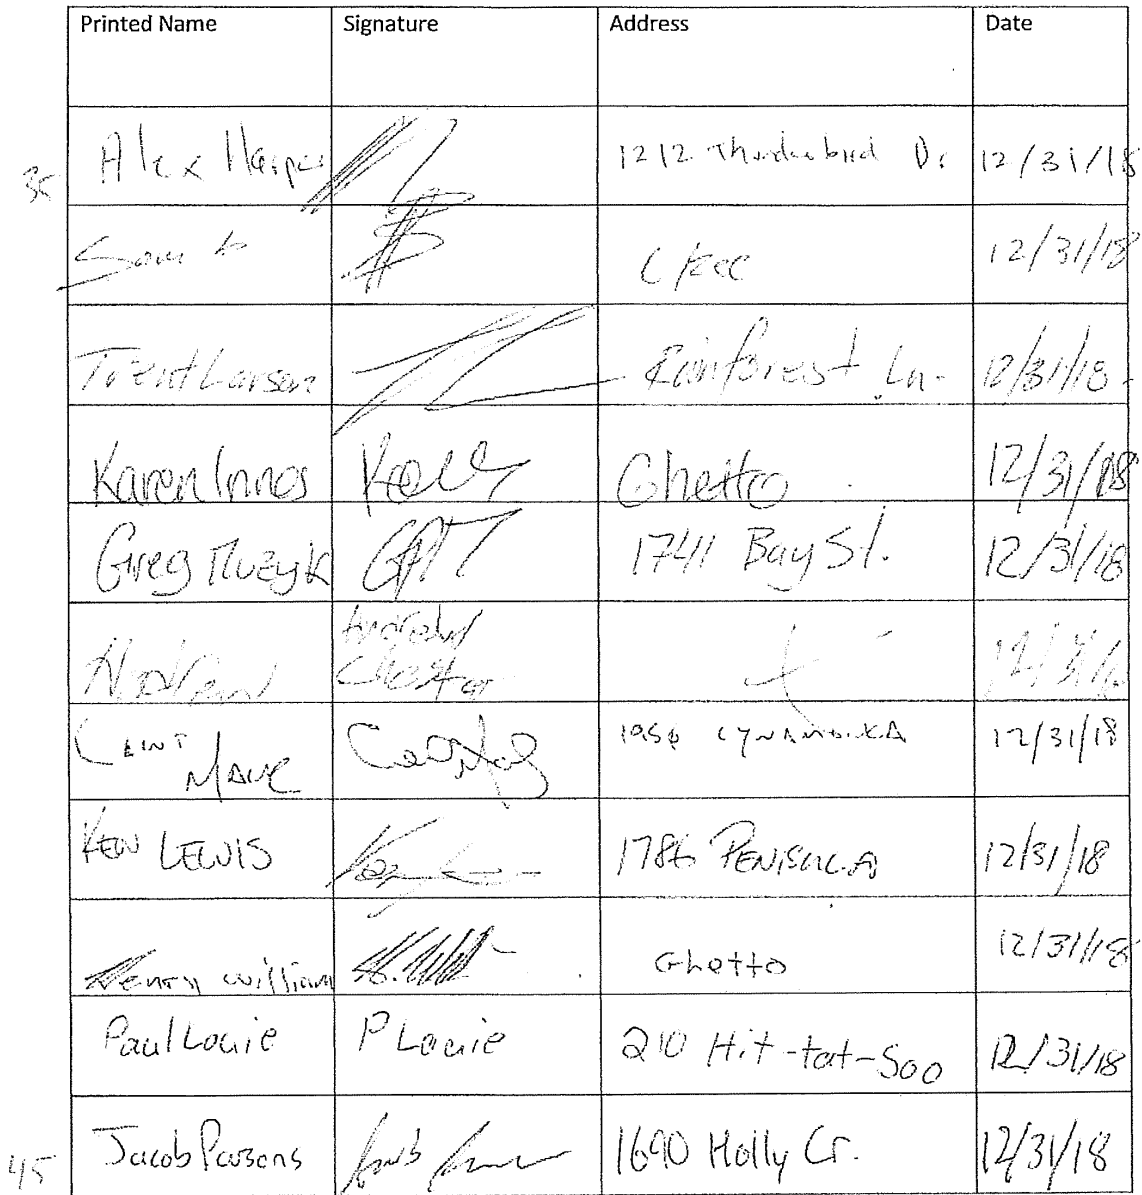 Printed Name Signature Address Date
35 Alex Harper 1212 Thunderbird Dr 12/31/18
Sam 12/31/18
Trent Larsen Rainforest Ln. 12/31/18
Karen Innos Ghetto 12/31/18
Greg Muzyk GM 1741 Bay St. 12/31/18
Andrew Andrew
Clint Mauc 12/31/18
Ken Lewis 1786 Penisula 12/31/18
Henry William Ghetto 12/31/18
Paul Louie P Louie 210 Hit-tat-Soo 12/31/18
45 Jacob Parsons 1690 Holly Cr. 12/31/18